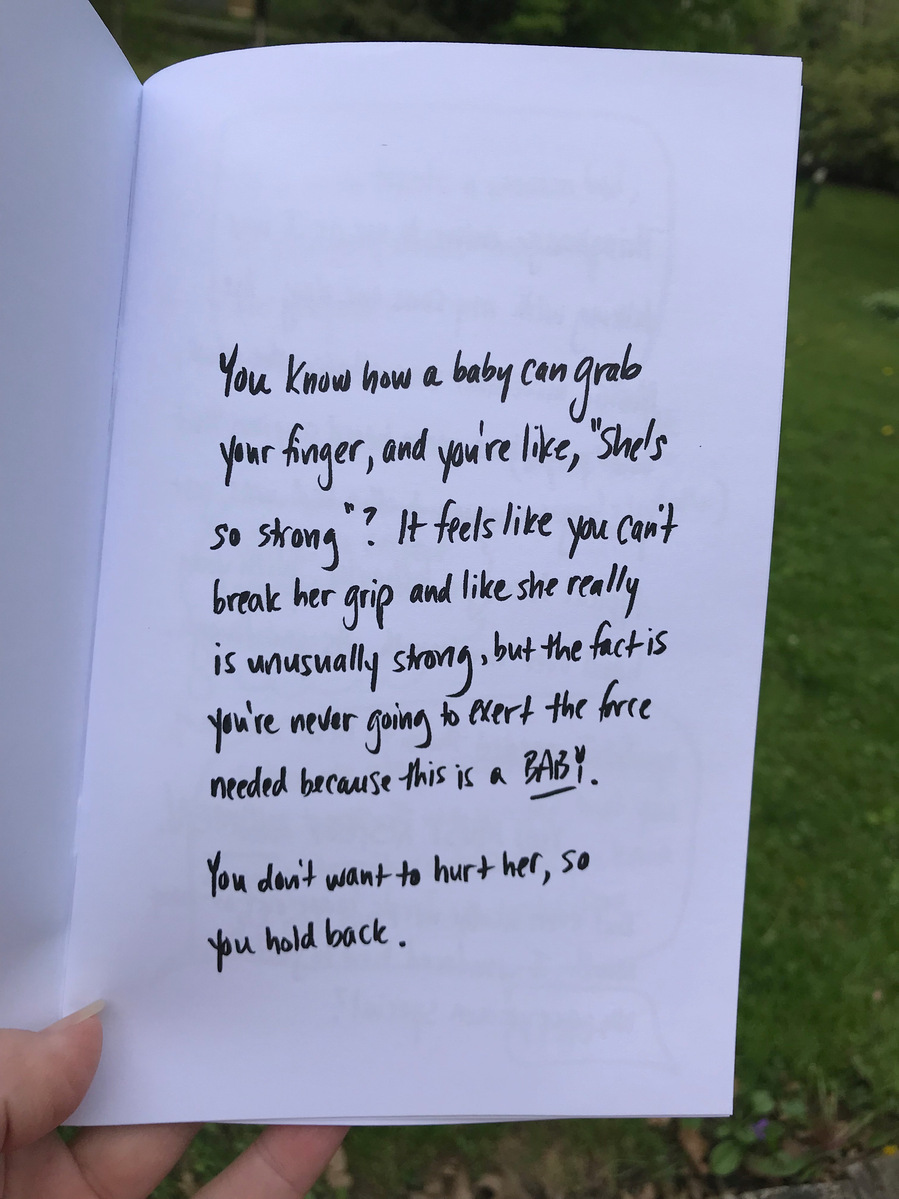 You know how a baby can grab
your finger, and you're like, "She's
so strong"? It feels like you can't
break her grip and like she really
is unusually strong, but the fact is
you're never going to exert the force
needed because this is a BABY.
You don't want to hurt her, so
you hold back.